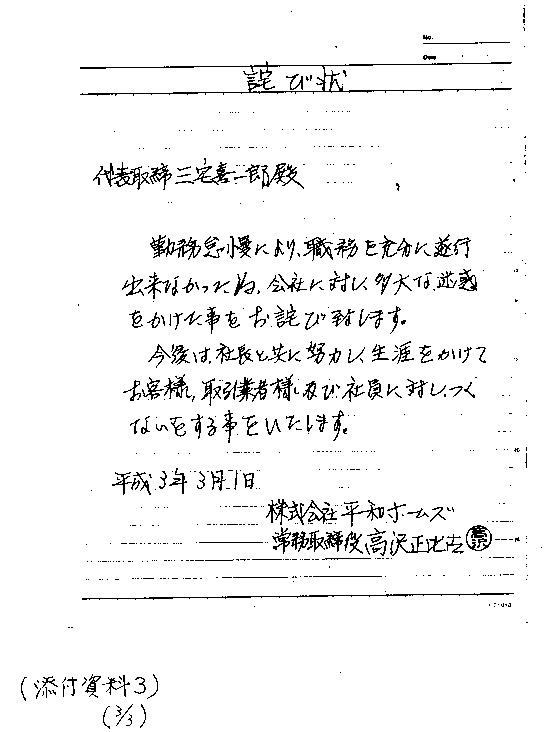 No.
Date
詫び状
代表取締三宅喜一郎殿
勤務怠慢により、職務を充分に遂行
出来なかった為、会社に対し多大な迷惑
をかけた事をお詫び致します。
今後は、社長と共に努力し生涯をかけて
お客様、取引業者様、及び社員に対しつく
ないをする事をいたします。
平成3年3月1日
株式会社平和ホームズ
常務取締役高沢正比古
(添付資料3)
(3/3)